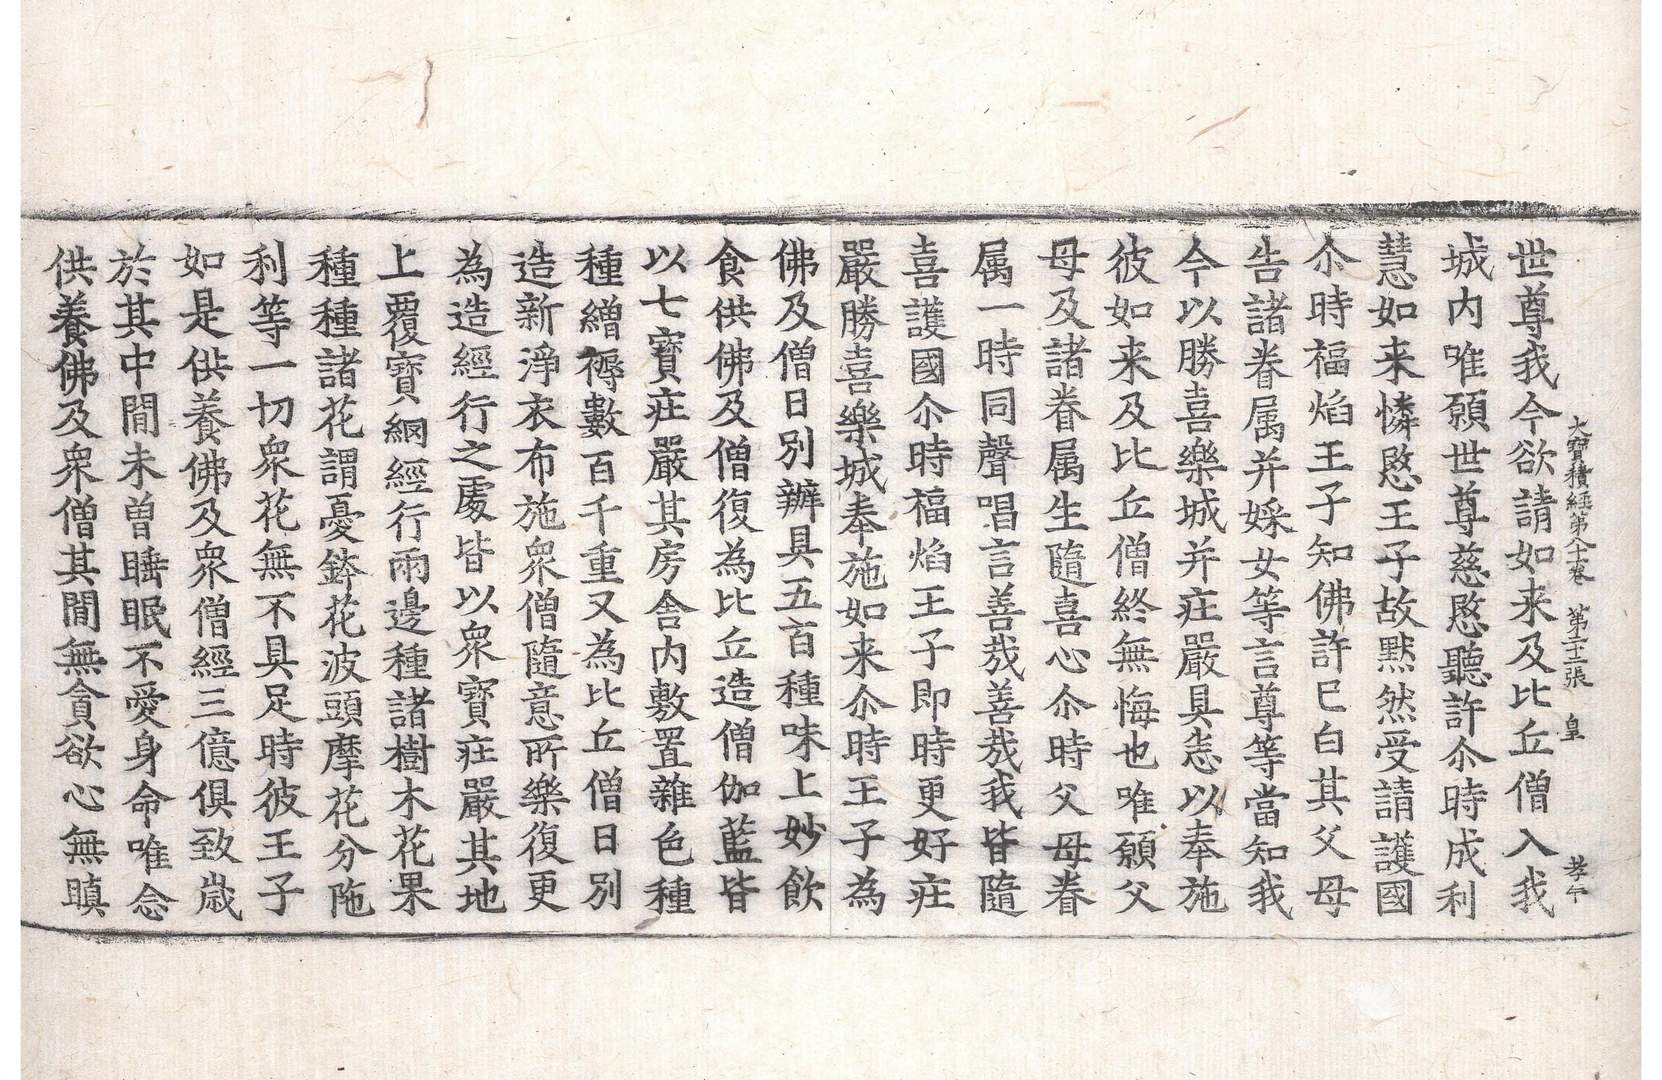 大寶積經第八十卷 第十二張 皇
世尊我今欲請如来及比丘僧入我
城内唯願世尊慈愍聽許尒時成利
慧如来憐愍王子故默然受請護國
尒時福焰王子知佛許已白其父母
告諸眷属并婇女等言尊等當知我
今以勝喜樂城并庄嚴具悉以奉施
彼如来及比丘僧終無悔也唯願父
母及諸眷属生隨喜心尒時父母眷
属一時同聲唱言善哉善哉我皆隨
喜護國尒時福焰王子即時更好庄
嚴勝喜樂城奉施如来尒時王子為
佛及僧日別辦具五百種味上妙飲
食供佛及僧復為比丘造僧伽藍皆
以七寶庄嚴其房舎内敷置雜色種
種繒褥數百千重又為比丘僧日別
造新淨衣布施衆僧隨意所樂復更
為造經行之處皆以衆寶庄嚴其地
上覆寶網經行兩邊種諸樹木花果
種種諸花謂憂鉢花波頭摩花分陁
利等一切衆花無不具足時彼王子
如是供養佛及衆僧經三億俱致歳
於其中間未曽睡眠不愛身命唯念
供養佛及衆僧其間無貪欲心無瞋